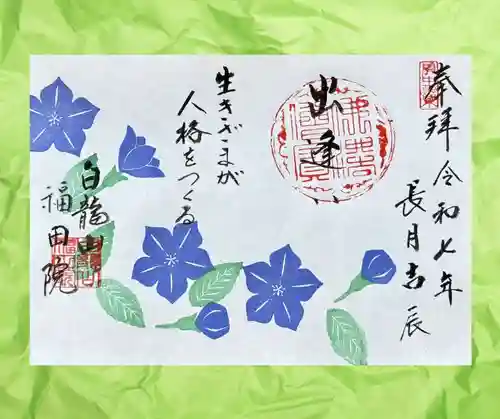 奉拝
令和七年
長月吉辰
出逢
生きざまが
人格をつくる
白龍山
福田院